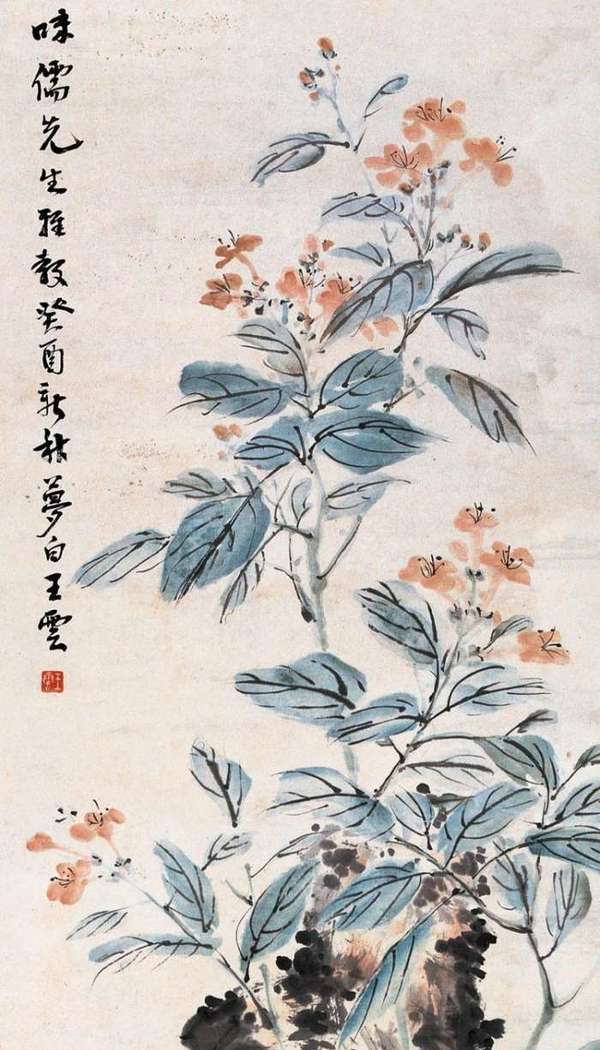 味儒先生雅教癸酉新秋夢白王雲